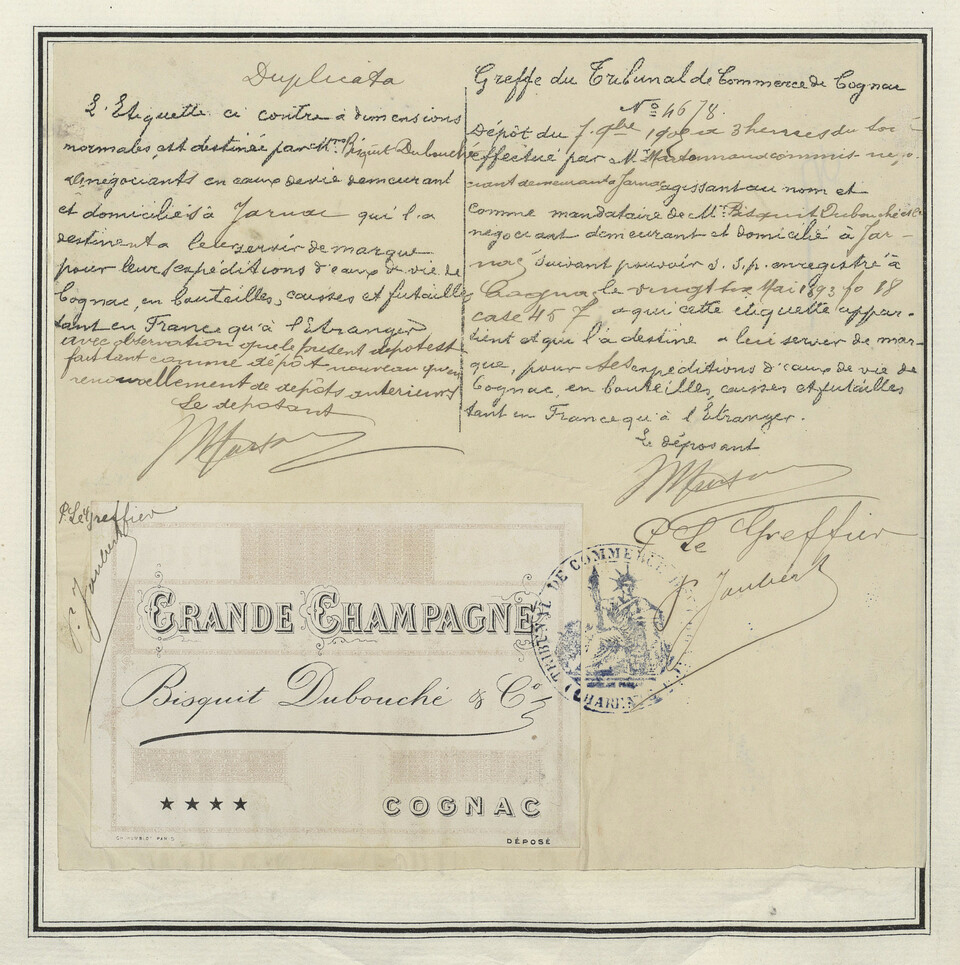 Duplicata
L'Etiquette ci contre à dimensions
normales, est destinée par Mrs Bisquit Dubouché
& négociants en eaux de vie demeurant
et domiciliés à Jarnac qui l'a
destinent a leur servir de marque
pour leurs expéditions d'eaux de vie de
Cognac, en bouteilles, caisses et futailles
tant en France qu'à l'Etranger
avec observation que le present depot est
fait tant comme dépôt nouveau qu'en
renouvellement de dépôts anterieurs
Le deposant
Greffe du Tribunal de Commerce de Cognac
No 4678.
Dépôt du 7 9bre à 3 heures du soir
effectué par Mr commis-négo-
ciant demeurant à Jarnac agissant au nom et
comme mandataire de Mrs Bisquit Dubouché et Ce
négociant demeurant et domicilié à Jar-
nac suivant pouvoir s. s. p. enregistré à
Cognac, le vingt six Mai 1893 fo 18
case 457 a qui cette étiquette appar-
tient et qui l'a destine a leur servir de mar-
que, pour ses expéditions d'eaux de vie de
Cognac, en bouteilles, caisses et futailles
tant en France qu'à l'Etranger.
Le déposant
P. Le Greffier
P. Joubert
P. Le Greffier
P. Joubert
TRIBUNAL DE COMMERCE
(CHARENTE)
GRANDE CHAMPAGNE
Bisquit Dubouché & Co
★★★★ COGNAC
DÉPOSÉ